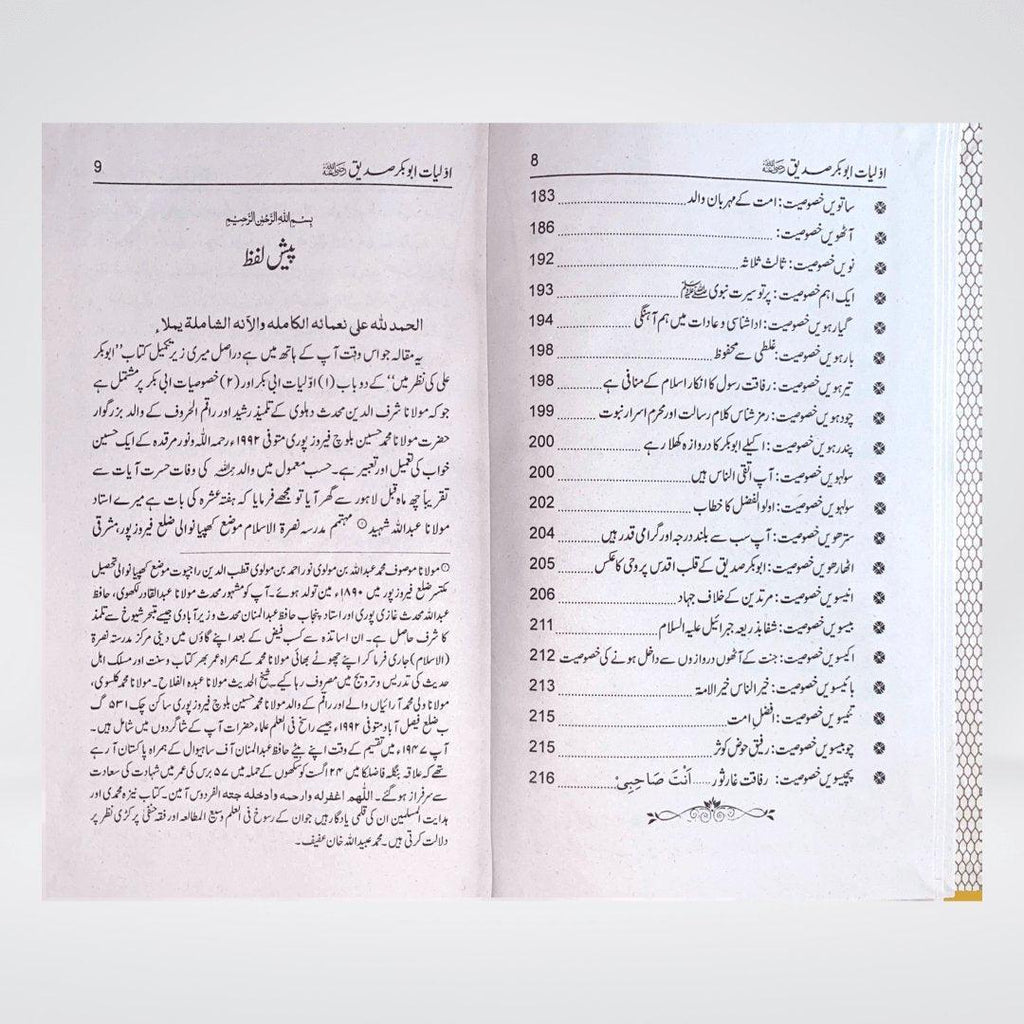 8 اوّلیات ابوبکر صدیق ؓ
ساتویں خصوصیت: امت کے مہربان والد ........ 183
آٹھویں خصوصیت: ........ 186
نویں خصوصیت: ثالث ثلاثہ ........ 192
ایک اہم خصوصیت: پرتو سیرت نبوی ﷺ ........ 193
گیارہویں خصوصیت: ادا شناسی و عادات میں ہم آہنگی ........ 194
بارہویں خصوصیت: غلطی سے محفوظ ........ 198
تیرہویں خصوصیت: رفاقت رسول کا انکار اسلام کے منافی ہے ........ 198
چودہویں خصوصیت: رمز شناس کلام رسالت اور محرم اسرار نبوت ........ 199
پندرہویں خصوصیت: اکیلے ابوبکر کا دروازہ کھلا رہے ........ 200
سولہویں خصوصیت: آپ اتقی الناس ہیں ........ 200
سولہویں خصوصیت: اولوالفضل کا خطاب ........ 202
سترھویں خصوصیت: آپ سب سے بلند درجہ اور گرامی قدر ہیں ........ 204
اٹھارھویں خصوصیت: ابوبکر صدیق کے قلب اقدس پر وحی کا عکس ........ 205
انیسویں خصوصیت: مرتدین کے خلاف جہاد ........ 206
بیسویں خصوصیت: شفا بذریعہ جبرائیل علیہ السلام ........ 211
اکیسویں خصوصیت: جنت کے آٹھوں دروازوں سے داخل ہونے کی خصوصیت 212
بائیسویں خصوصیت: خیر الناس خیر الامۃ ........ 213
تیئیسویں خصوصیت: افضل امت ........ 215
چوبیسویں خصوصیت: رفیق حوض کوثر ........ 215
پچیسویں خصوصیت: رفاقت غار ثور ..... اَنْتَ صَاحِبِیْ ........ 216
9 اوّلیات ابوبکر صدیق ؓ
بِسْمِ اللّٰهِ الرَّحْمٰنِ الرَّحِيْمِ
پیش لفظ
الحمد لله علی نعمائه الکامله والآئه الشاملة یملاء
یہ مقالہ جو اس وقت آپ کے ہاتھ میں ہے دراصل میری زیر تکمیل کتاب ”ابوبکر
علی کی نظر میں“ کے دو باب (۱) اوّلیات ابی بکر اور (۲) خصوصیات ابی بکر پر مشتمل ہے
جو کہ مولانا شرف الدین محدث دہلوی کے تلمیذ رشید اور راقم الحروف کے والد بزرگوار
حضرت مولانا محمد حسین بلوچ فیروز پوری متوفی ۱۹۹۲ء رحمہ اللہ ونور مرقدہ کے ایک حسین
خواب کی تعمیل اور تعبیر ہے۔ حسب معمول میں والد ؒ کی وفات حسرت آیات سے
تقریباً چھ ماہ قبل لاہور سے گھر آیا تو مجھے فرمایا کہ ہفتہ عشرہ کی بات ہے میرے استاد
مولانا عبداللہ شہید ① مہتمم مدرسہ نصرۃ الاسلام موضع کھپیانوالی ضلع فیروز پور، مشرقی
① مولانا موصوف محمد عبداللہ بن مولوی نور احمد بن مولوی قطب الدین راجپوت موضع کھپیانوالی تحصیل
مکتسر ضلع فیروز پور میں ۱۸۹۰ء میں تولد ہوئے۔ آپ کو مشہور محدث مولانا عبدالقادر لکھوی، حافظ
عبداللہ محدث غازی پوری اور استاد پنجاب حافظ عبدالمنان محدث وزیر آبادی جیسے متبحر شیوخ سے تلمذ
کا شرف حاصل ہے۔ ان اساتذہ سے کسب فیض کے بعد اپنے گاؤں میں دینی مرکز مدرسہ نصرۃ
(الاسلام) جاری فرما کر اپنے چھوٹے بھائی مولانا محمد کے ہمراہ عمر بھر کتاب وسنت اور مسلک اہل
حدیث کی تدریس و ترویج میں مصروف رہا کیے۔ شیخ الحدیث مولانا عبدہ الفلاح۔ مولانا محمد کلسوی،
مولانا ولی محمد آرائیاں والے اور راقم کے والد مولانا محمد حسین بلوچ فیروز پوری ساکن چک ۵۳۱ گ
ب ضلع فیصل آباد متوفی ۱۹۹۲ء جیسے راسخ فی العلم علماء حضرات آپ کے شاگردوں میں شامل ہیں۔
آپ ۱۹۴۷ء میں تقسیم کے وقت اپنے بیٹے حافظ عبدالمنان آف ساہیوال کے ہمراہ پاکستان آ رہے
تھے کہ علاقہ بنگلہ فاضلکا میں ۲۴ اگست کو سکھوں کے حملہ میں ۵۷ برس کی عمر میں شہادت کی سعادت
سے سرفراز ہو گئے۔ اللّٰهم اغفرله وارحمه وادخله جنته الفردوس آمین۔ کتاب نیزہ محمدی اور
ہدایت المسلمین ان کی قلمی یادگار ہیں جو ان کے رسوخ فی العلم وسیع المطالعہ اور فقہ حنفی پر کڑی نظر پر
دلالت کرتی ہیں۔ محمد عبید اللہ خان عفیف۔